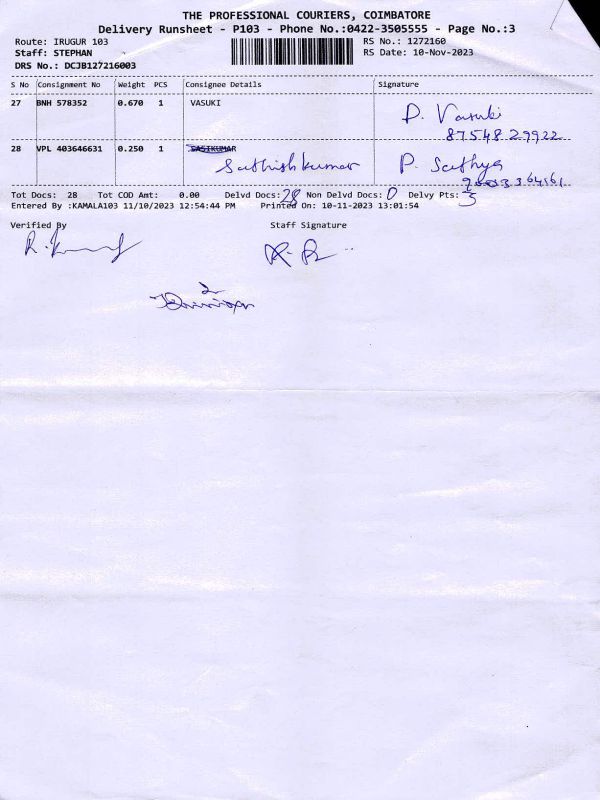 THE PROFESSIONAL COURIERS, COIMBATORE
Delivery Runsheet - P103 - Phone No.:0422-3505555 - Page No.:3
Route: IRUGUR 103 RS No.: 1272160
Staff: STEPHAN RS Date: 10-Nov-2023
DRS No.: DCJB127216003
S No Consignment No Weight PCS Consignee Details Signature
27 BNH 578352 0.670 1 VASUKI D. Vasuki
87548 29922
28 VPL 403646631 0.250 1 SASIKUMAR
Sathishkumar P. Sathya
Tot Docs: 28 Tot COD Amt: 0.00 Delvd Docs: 28 Non Delvd Docs: 0 Delvy Pts: 3
Entered By :KAMALA103 11/10/2023 12:54:44 PM Printed On: 10-11-2023 13:01:54
Verified By Staff Signature